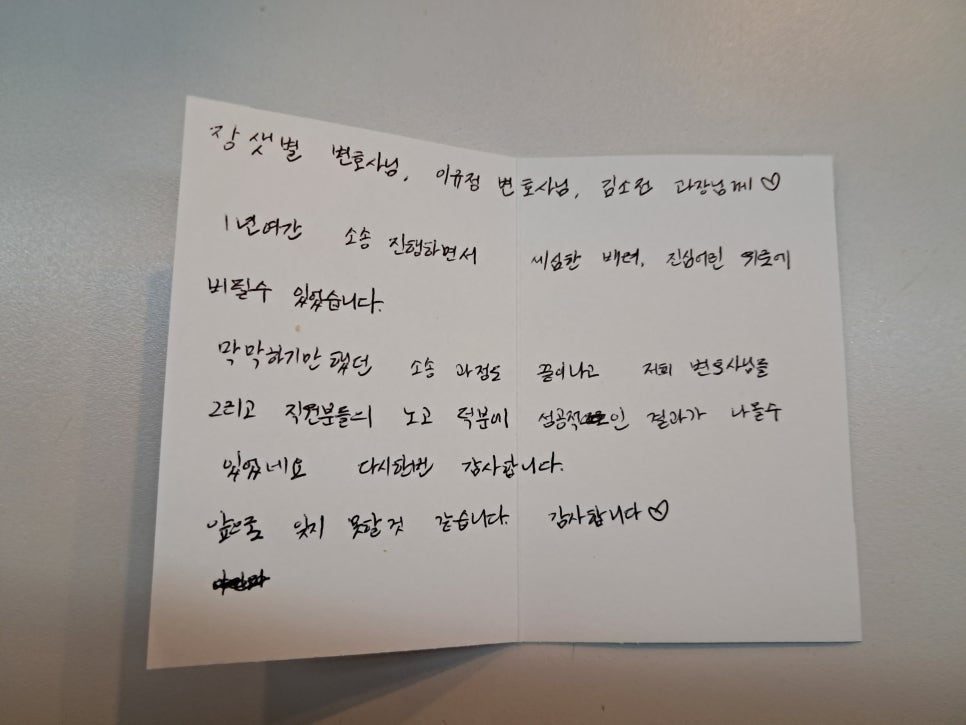 장샛별 변호사님, 이규정 변호사님, 김소전 과장님께 ♡
1년여간 소송 진행하면서 세심한 배려, 진심어린
버틸수 있었습니다.
막막하기만 했던 소송 과정도 끝이나고 저희 변호사님들
그리고 직원분들의 노고 덕분에 성공적인 결과가 나올수
있었네요 다시한번 감사합니다.
앞으로 잊지 못할것 같습니다. 감사합니다♡